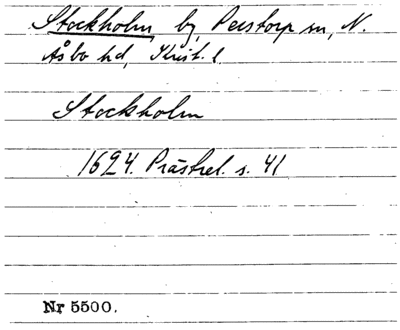 Stockholm by, Perstorp sn, N.
Åsbo hd, Krist. l
Stockholm
1624. Prästrel. s. 41
Nr 5500.